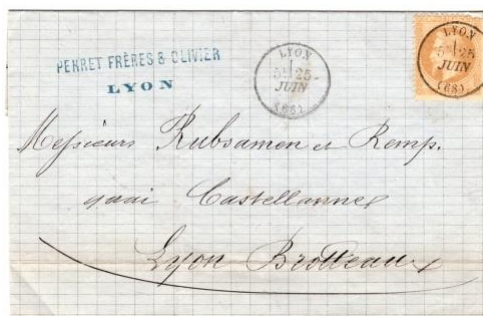 PERRET FRÈRES & OLIVIER
LYON
LYON
5E 25
JUIN
(68)
LYON
5E 25
JUIN
(68)
Messieurs Rubsamen et Remp.
quai Castellanne
Lyon Brotteaux